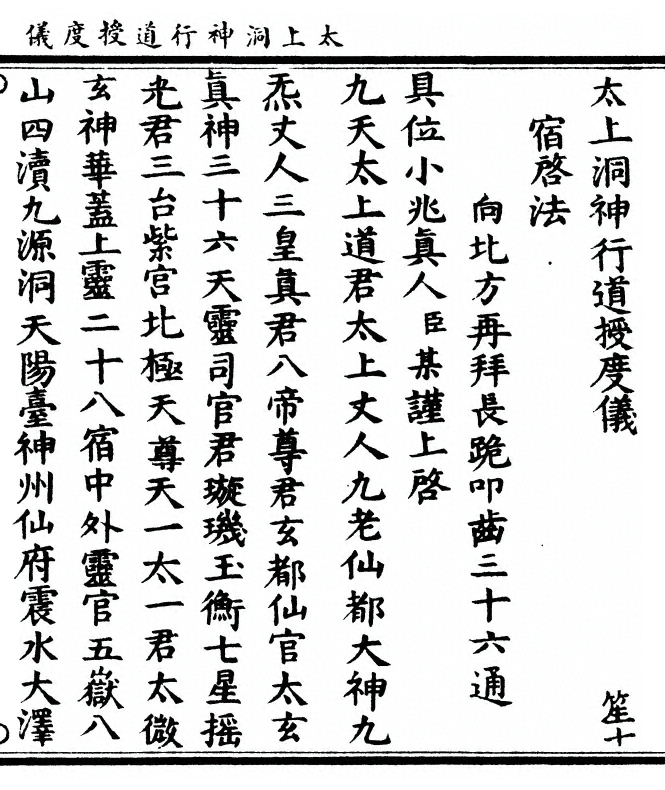 太上洞神行道授度儀
太上洞神行道授度儀
笙十
宿啓法
向北方再拜長跪叩齒三十六通
具位小兆眞人臣某謹上啓
九天太上道君太上丈人九老仙都大神九
炁丈人三皇眞君八帝尊君玄都仙官太玄
眞神三十六天靈司官君璇璣玉衡七星揺
光君三台紫宫北極天尊天一太一君太微
玄神華蓋上靈二十八宿中外靈官五嶽八
山四瀆九源洞天陽臺神州仙府震水大澤